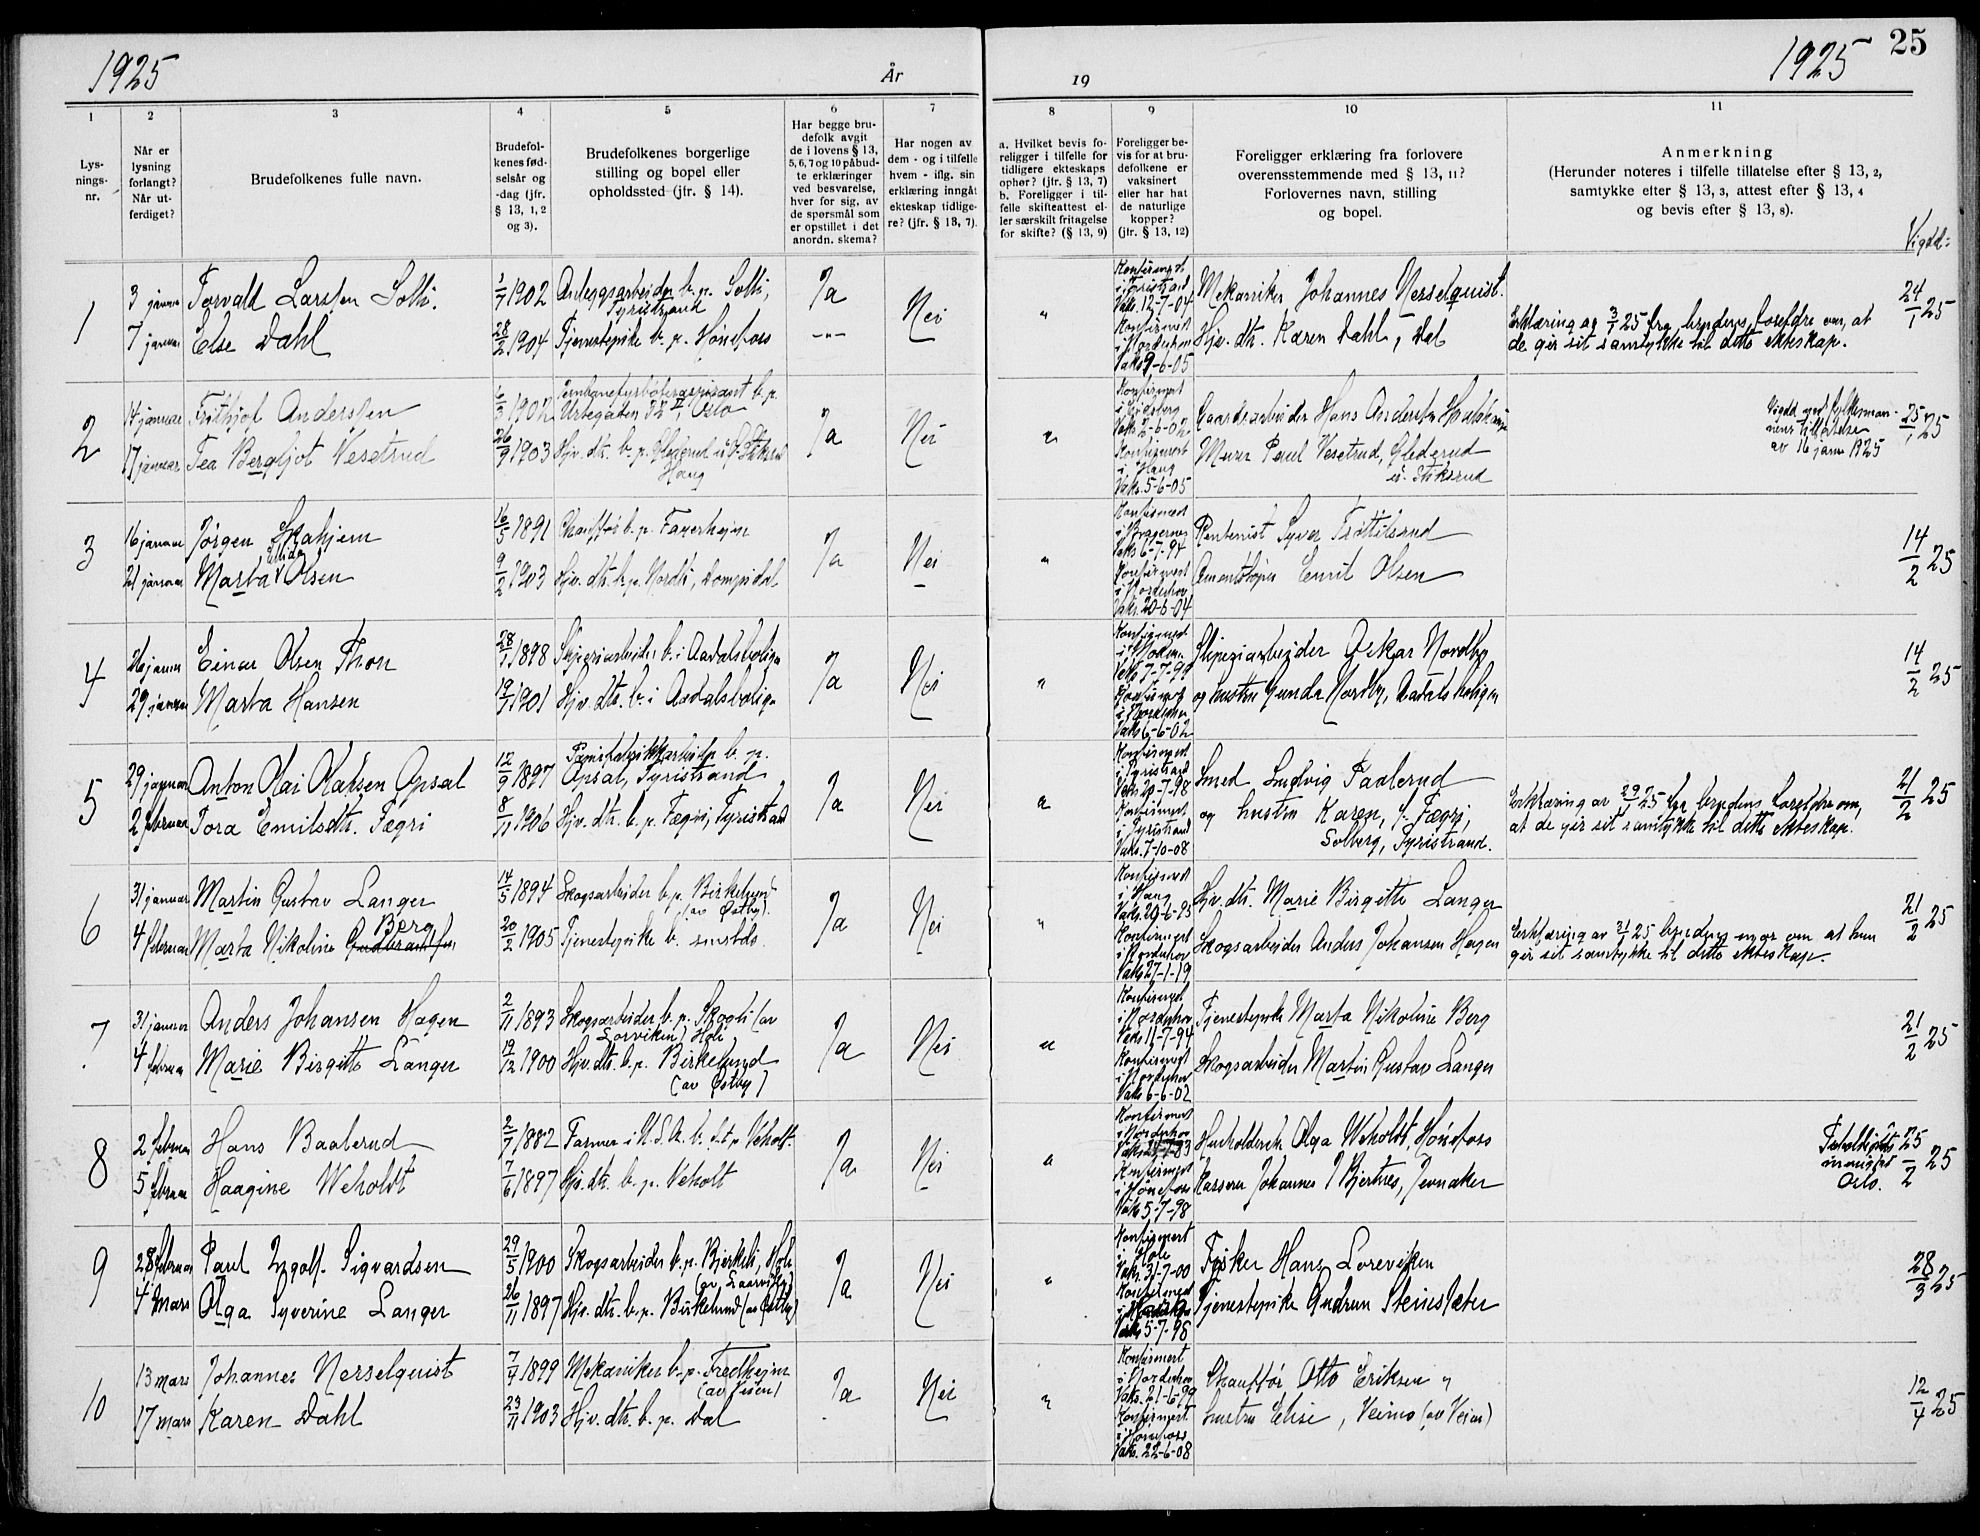 1925
År
19
1925
25
1
2
3
4
5
6
7
8
9
10
11
Lys-
nings-
nr.
Når er
lysning
forlangt?
Når ut-
ferdiget?
Brudefolkenes fulle navn.
Brudefol-
kenes fød-
selsår og
-dag (jfr.
§ 13, 1, 2
og 3).
Brudefolkenes borgerlige
stilling og bopel eller
opholdssted (jfr. § 14).
Har begge bru-
defolk avgit
de i lovens § 13,
5, 6, 7 og 10 påbud-
te erklæringer
ved besvarelse,
hver for sig, av
de spørsmål som
er opstillet i det
anordn. skema?
Har nogen av
dem - og i tilfelle
hvem - iflg. sin
erklæring inngått
ekteskap tidlige-
re? (jfr. § 13, 7).
a. Hvilket bevis fo-
religger i tilfelle for
tidligere ekteskaps
ophør? (jfr. § 13, 7)
b. Foreligger i til-
felle skifteattest el-
ler særskilt fritagelse
for skifte? (§ 13, 9)
Foreligger be-
vis for at bru-
defolkene er
vaksinert
eller har hat
de naturlige
kopper?
(jfr. § 13, 12)
Foreligger erklæring fra forlovere
overensstemmende med § 13, 11?
Forlovernes navn, stilling
og bopel.
Anmerkning
(Herunder noteres i tilfelle tillatelse efter § 13, 2,
samtykke efter § 13, 3, attest efter § 13, 4
og bevis efter § 13, 8).
Vigdd:
1
3 januar Torvald Larsen Solli.
1/7 1902 Anlegsarbeider b. p. Solli,
Tyristrand
Ja Nei "
Konfirmert
i Tyristrand
Vaks. 12-7-04
Mekaniker Johannes Nerselquist.
24/1 25
7 januar Else Dahl
28/2 1904 Tjenestepike b. p. Hønefoss
Konfirmert
i Norderhov
Vaks 9-6-05
Hjv. dtr. Karen Dahl, Dal
Erklæring av 3/1 25 fra brudens foreldre om, at
de gir sit samtykke til dette ekteskap.
2
14 januar Frithjof Anderssen
6/3 1902
b. p.
Urtegaten II, Oslo
Ja Nei "
Konfirmert
Vaks. 2-6-02
Gaardsarbeider Hans Andersen
Vigdd med fylkesman-
nens tillatelse
av 16 janu 1925
25/1 25
17 januar Tea Bergljot Vesetrud
26/9 1903 Hjv. dtr. b. p. Glederud
Haug
Konfirmert
i Haug
Vaks. 5-6-05
Murer Paul Vesetrud, Glederud
u. Stiksrud
3
16 januar Jørgen Skahjem
16/5 1891 Chauffør b. p. Fagerheim
Ja Nei "
Konfirmert
i Bragernes
Vaks 6-7-94
Rentenist Syver
14/2 25
21 januar Marta Elida Olsen
9/2 1903 Hjv. dtr. b. p. Nordli,
Konfirmert
i Norderhov
Vaks. 20-5-04
Emil Olsen
4
26 januar Einar Olsen Thon
28/1 1898 Sliperiarbeider b. i Aadalsbolign
Ja Nei "
Konfirmert
Vaks 7-7-99
Sliperiarbeider Oskar Nordby
14/2 25
29 januar Marta Hansen
19/1 1901 Hjv. dtr. b. i Aadalsbolign
Konfirmert
i Norderhov
Vaks 6-6-02
og hustru Gunda Nordby, Aadalsbolign
5
29 januar Anton Olai Olaksen Opsal
12/9 1897
Papirfabrikkarbeider b. p.
Opsal, Tyristrand
Ja Nei "
Konfirmert
i Tyristrand
Vaks 20-7-98
Smed Ludvig Paalerud
21/2 25
2 februar Tora Emilsdtr. Fægri
8/11 1906 Hjv. dtr. b. p. Fægri, Tyristrand
Konfirmert
i Tyristrand
Vaks. 7-10-08
og hustru Karen, f. Fægri,
Solberg, Tyristrand.
Erklæring av 29/1 25 fra brudens foreldre om,
at de gir sit samtykke til dette ekteskap.
6
31 januar Martin Gustav Langer
14/5 1894 Skogsarbeider b. p. Birkelund
(av Østby).
Ja Nei "
Konfirmert
i Haug
Vaks. 29-6-95
Hjv. dtr. Marie Birgitte Langer
21/2 25
4 februar Marta Nikoline Gudbrandsen Berg
20/2 1905 Tjenestepike b. smstds.
Konfirmert
i Norderhov
Vaks 27-1-19
Skogsarbeider Anders Johansen Hagen
Erklæring av 31/1 25 brudens mor om at hun
gir sit samtykke til dette ekteskap.
7
31 januar Anders Johansen Hagen
2/11 1893 Skogsarbeider b. p. Skogli (av
Lorviken) Hole
Ja Nei "
Konfirmert
i Norderhov
Vaks 11-7-94
Tjenestepike Marta Nikoline Berg
21/2 25
4 februar Marie Birgitte Langer
19/12 1900 Hjv. dtr. b. p. Birkelund
(av Østby)
Konfirmert
i Norderhov
Vaks 6-6-02
Skogsarbeider Martin Gustav Langer
8
2 februar Hans Baalerud
2/7 1882 Farmer i U.S.A. b. f. t. p. Veholt
Ja Nei "
Konfirmert
i Norderhov
Husholderske Olga Weholdt, Hønefoss
Oslo.
25/2 25
5 februar Haagine Weholdt
7/6 1897 Hjv. dtr. b. p. Veholt
Konfirmert
i Hønefoss
Vaks 5-7-98
Kasserer Johannes J Bjertnes, Jevnaker
9
28 februar Paul Ingolf Sigvardsen
29/5 1900 Skogsarbeider b. p. Bjerkeli, Hole
(av Laarviken)
Ja Nei "
Konfirmert
i Hole
Vaks. 31-7-00
Fisker Hans Loreviken
28/3 25
4 mars Olga Syverine Langer
26/11 1897 Hjv. dtr. b. p. Birkelund (av Østby)
Konfirmert
Vaks 5-7-98
Tjenestepike Gudrun Steinsæter
10
13 mars Johannes Nerselquist
7/4 1899 Mekaniker b. p. Fredheim
(av Veien)
Ja Nei "
Konfirmert
i Norderhov
Vaks. 21-6-99
Chauffør Otto Eriksen
12/4 25
17 mars Karen Dahl
23/11 1903 Hjv. dtr. b. p. Dal
Konfirmert
i Hønefoss
Vaks. 22-6-08
hustru Elise, Veimo (av Veien)